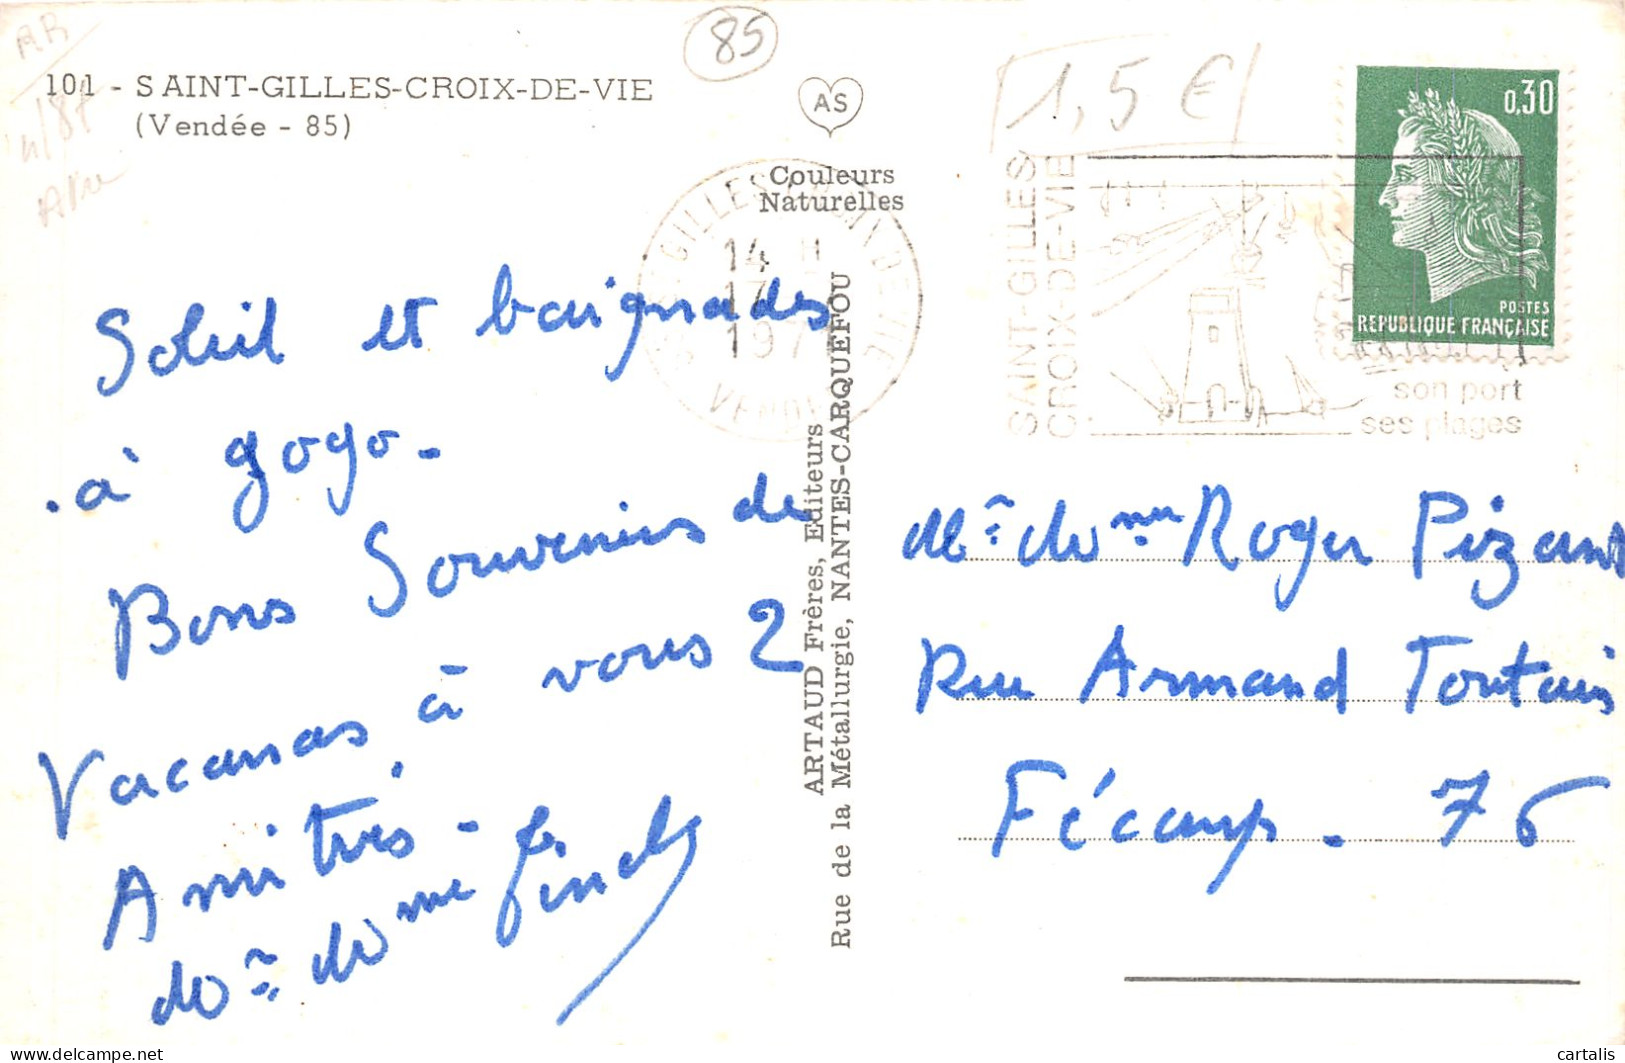 AR
85
1,5 €
101 - SAINT-GILLES-CROIX-DE-VIE
(Vendée - 85)
AS
Couleurs
Naturelles
0,30
POSTES
REPUBLIQUE FRANÇAISE
14 H
17
197
VENDEE
SAINT-GILLES
CROIX-DE-VIE
son port
ses plages
Soleil et baignades
à gogo.
Bons Souvenirs de
Vacances à vous 2
Amitiés -
Mr et Mme
ARTAUD Frères, Editeurs
Rue de la Métallurgie, NANTES-CARQUEFOU
Mr et Mme Roger Pizant
Rue Armand Toutain
Fécamp. 76
cartalis
delcampe.net